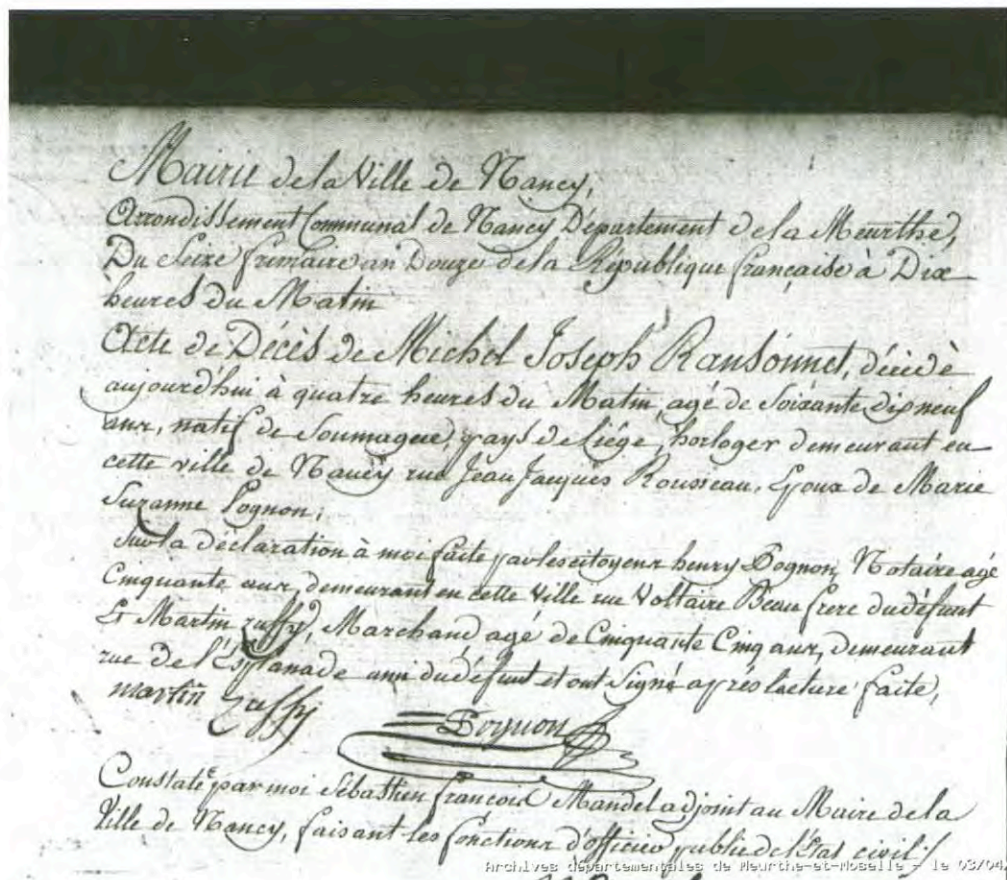 Mairie de la Ville de Nancy,
Arrondissement Communal de Nancy Département de la Meurthe,
Du Seize frimaire an Douze de la République française à Dix
heures du Matin
Acte de Décès de Michel Joseph Ransonnet, décédé
aujourd'hui à quatre heures du Matin, agé de Soixante dix neuf
ans, natif de Soumagne, pays de Liége, horloger demeurant en
cette ville de Nancy rue Jean Jacques Rousseau, Epoux de Marie
Suzanne Dognon;
Sur la déclaration à moi faite par les citoyens henry Dognon, Notaire agé
Cinquante ans, demeurant en cette Ville rue Voltaire Beau frere du défunt
Et Martin ruffy, Marchand agé de Cinquante Cinq ans, demeurant
rue de l'Esplanade ami du défunt et ont Signé après lecture faite,
martin ruffy Dognon
Constaté par moi Sébastien françois Mandel adjoint au Maire de la
Ville de Nancy, faisant les fonctions d'officier public de l'Etat civil
Archives départementales de Meurthe-et-Moselle - le 03/04